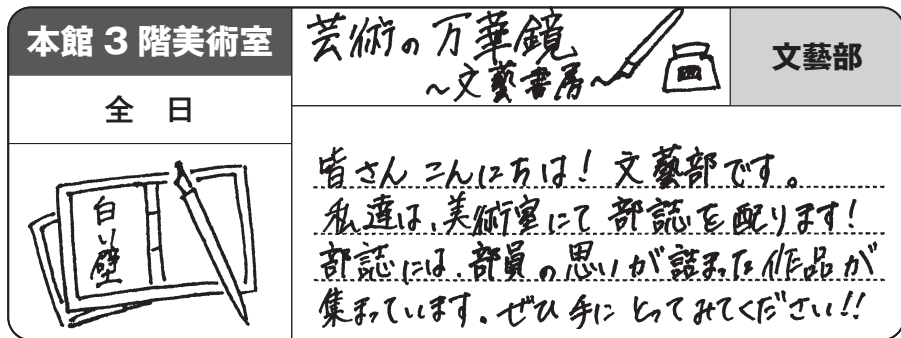 本館3階美術室
全日
芸術の万華鏡
～文藝書房～
文藝部
白い壁
皆さんこんにちは！文藝部です。
私達は、美術室にて部誌を配ります！
部誌には、部員の思いが詰まった作品が
集まっています。ぜひ手にとってみてください!!